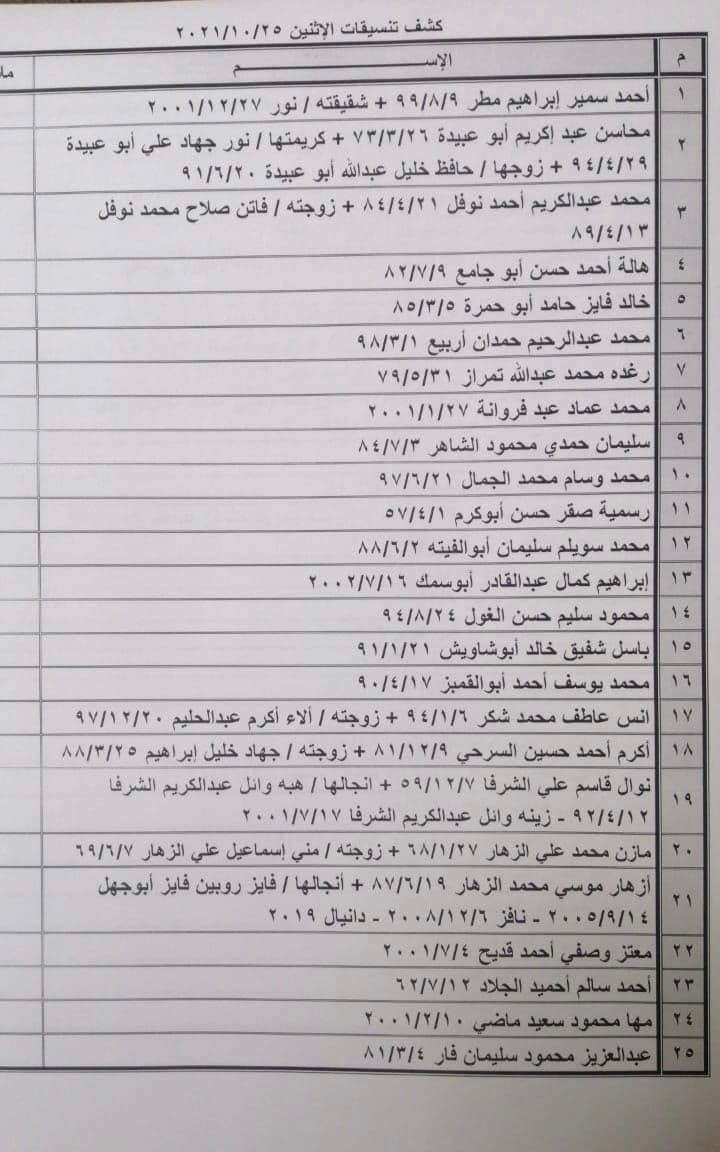 كشف تنسيقات الإثنين ٢٠٢١/١٠/٢٥
م الإســـــــــــــم
١ أحمد سمير إبراهيم مطر ٩٩/٨/٩ + شقيقته / نور ٢٠٠١/١٢/٢٧
٢ محاسن عبد إكريم أبو عبيدة ٧٣/٣/٢٦ + كريمتها / نور جهاد علي أبو عبيدة
٩٤/٤/٢٩ + زوجها / حافظ خليل عبدالله أبو عبيدة ٩١/٦/٢٠
٣ محمد عبدالكريم أحمد نوفل ٨٤/٤/٢١ + زوجته / فاتن صلاح محمد نوفل
٨٩/٤/١٣
٤ هالة أحمد حسن أبو جامع ٨٢/٧/٩
٥ خالد فايز حامد أبو حمرة ٨٥/٣/٥
٦ محمد عبدالرحيم حمدان أربيع ٩٨/٣/١
٧ رغده محمد عبدالله تمراز ٧٩/٥/٣١
٨ محمد عماد عبد فروانة ٢٠٠١/١/٢٧
٩ سليمان حمدي محمود الشاهر ٨٤/٧/٣
١٠ محمد وسام محمد الجمال ٩٧/٦/٢١
١١ رسمية صقر حسن أبوكرم ٥٧/٤/١
١٢ محمد سويلم سليمان أبوالفيته ٨٨/٦/٢
١٣ إبراهيم كمال عبدالقادر أبوسمك ٢٠٠٢/٧/١٦
١٤ محمود سليم حسن الغول ٩٤/٨/٢٤
١٥ باسل شفيق خالد أبوشاويش ٩١/١/٢١
١٦ محمد يوسف أحمد أبوالقمبز ٩٠/٤/١٧
١٧ انس عاطف محمد شكر ٩٤/١/٦ + زوجته / ألاء أكرم عبدالحليم ٩٧/١٢/٢٠
١٨ أكرم أحمد حسين السرحي ٨١/١٢/٩ + زوجته / جهاد خليل إبراهيم ٨٨/٣/٢٥
١٩ نوال قاسم علي الشرفا ٥٩/١٢/٧ + انجالها / هبه وائل عبدالكريم الشرفا
٩٢/٤/١٢ - زينه وائل عبدالكريم الشرفا ٢٠٠١/٧/١٧
٢٠ مازن محمد علي الزهار ٦٨/١/٢٧ + زوجته / مني إسماعيل علي الزهار ٦٩/٦/٧
٢١ أزهار موسي محمد الزهار ٨٧/٦/١٩ + أنجالها / فايز روبين فايز أبوجهل
٢٠٠٥/٩/١٤ - نافز ٢٠٠٨/١٢/٦ - دانيال ٢٠١٩
٢٢ معتز وصفي أحمد قديح ٢٠٠١/٧/٤
٢٣ أحمد سالم أحميد الجلاد ٦٢/٧/١٢
٢٤ مها محمود سعيد ماضي ٢٠٠١/٢/١٠
٢٥ عبدالعزيز محمود سليمان فار ٨١/٣/٤